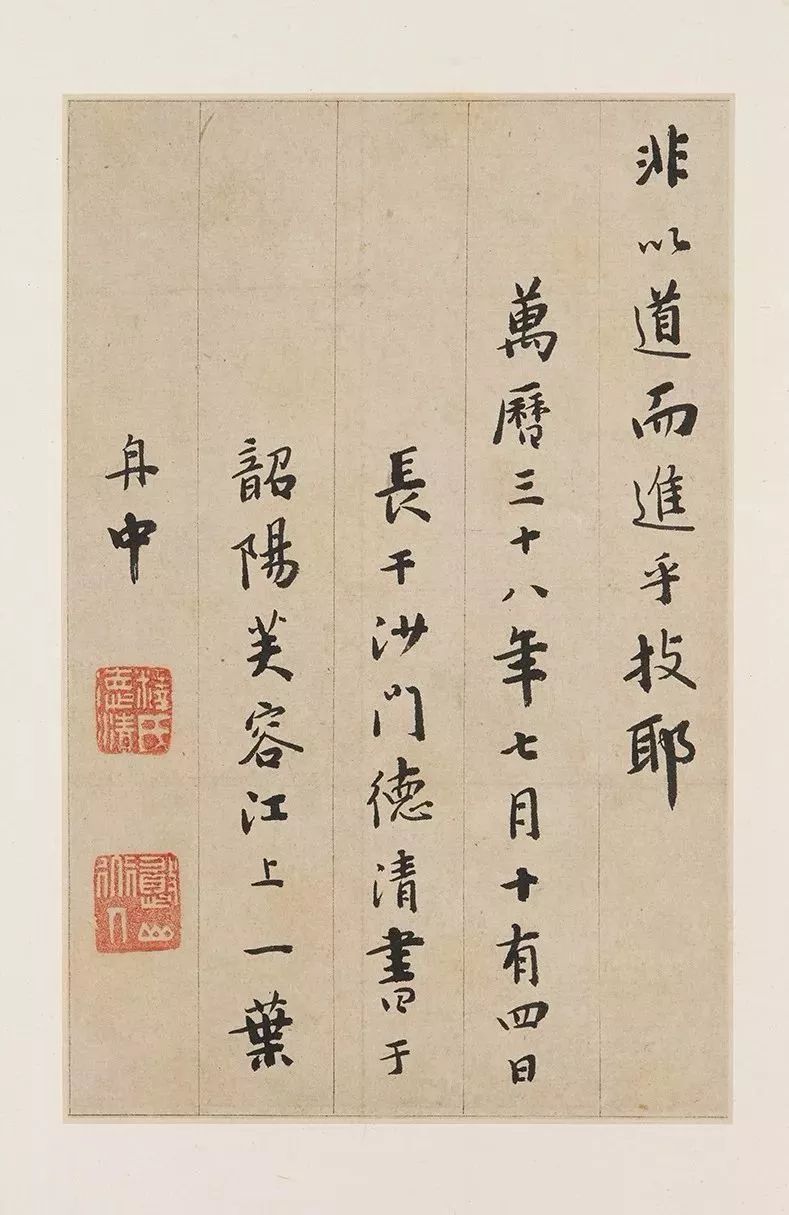 非以道而進乎技耶
萬曆三十八年七月十有四日
長干沙門德清書于
韶陽芙容江上一葉
舟中
氏德清
憨山道人